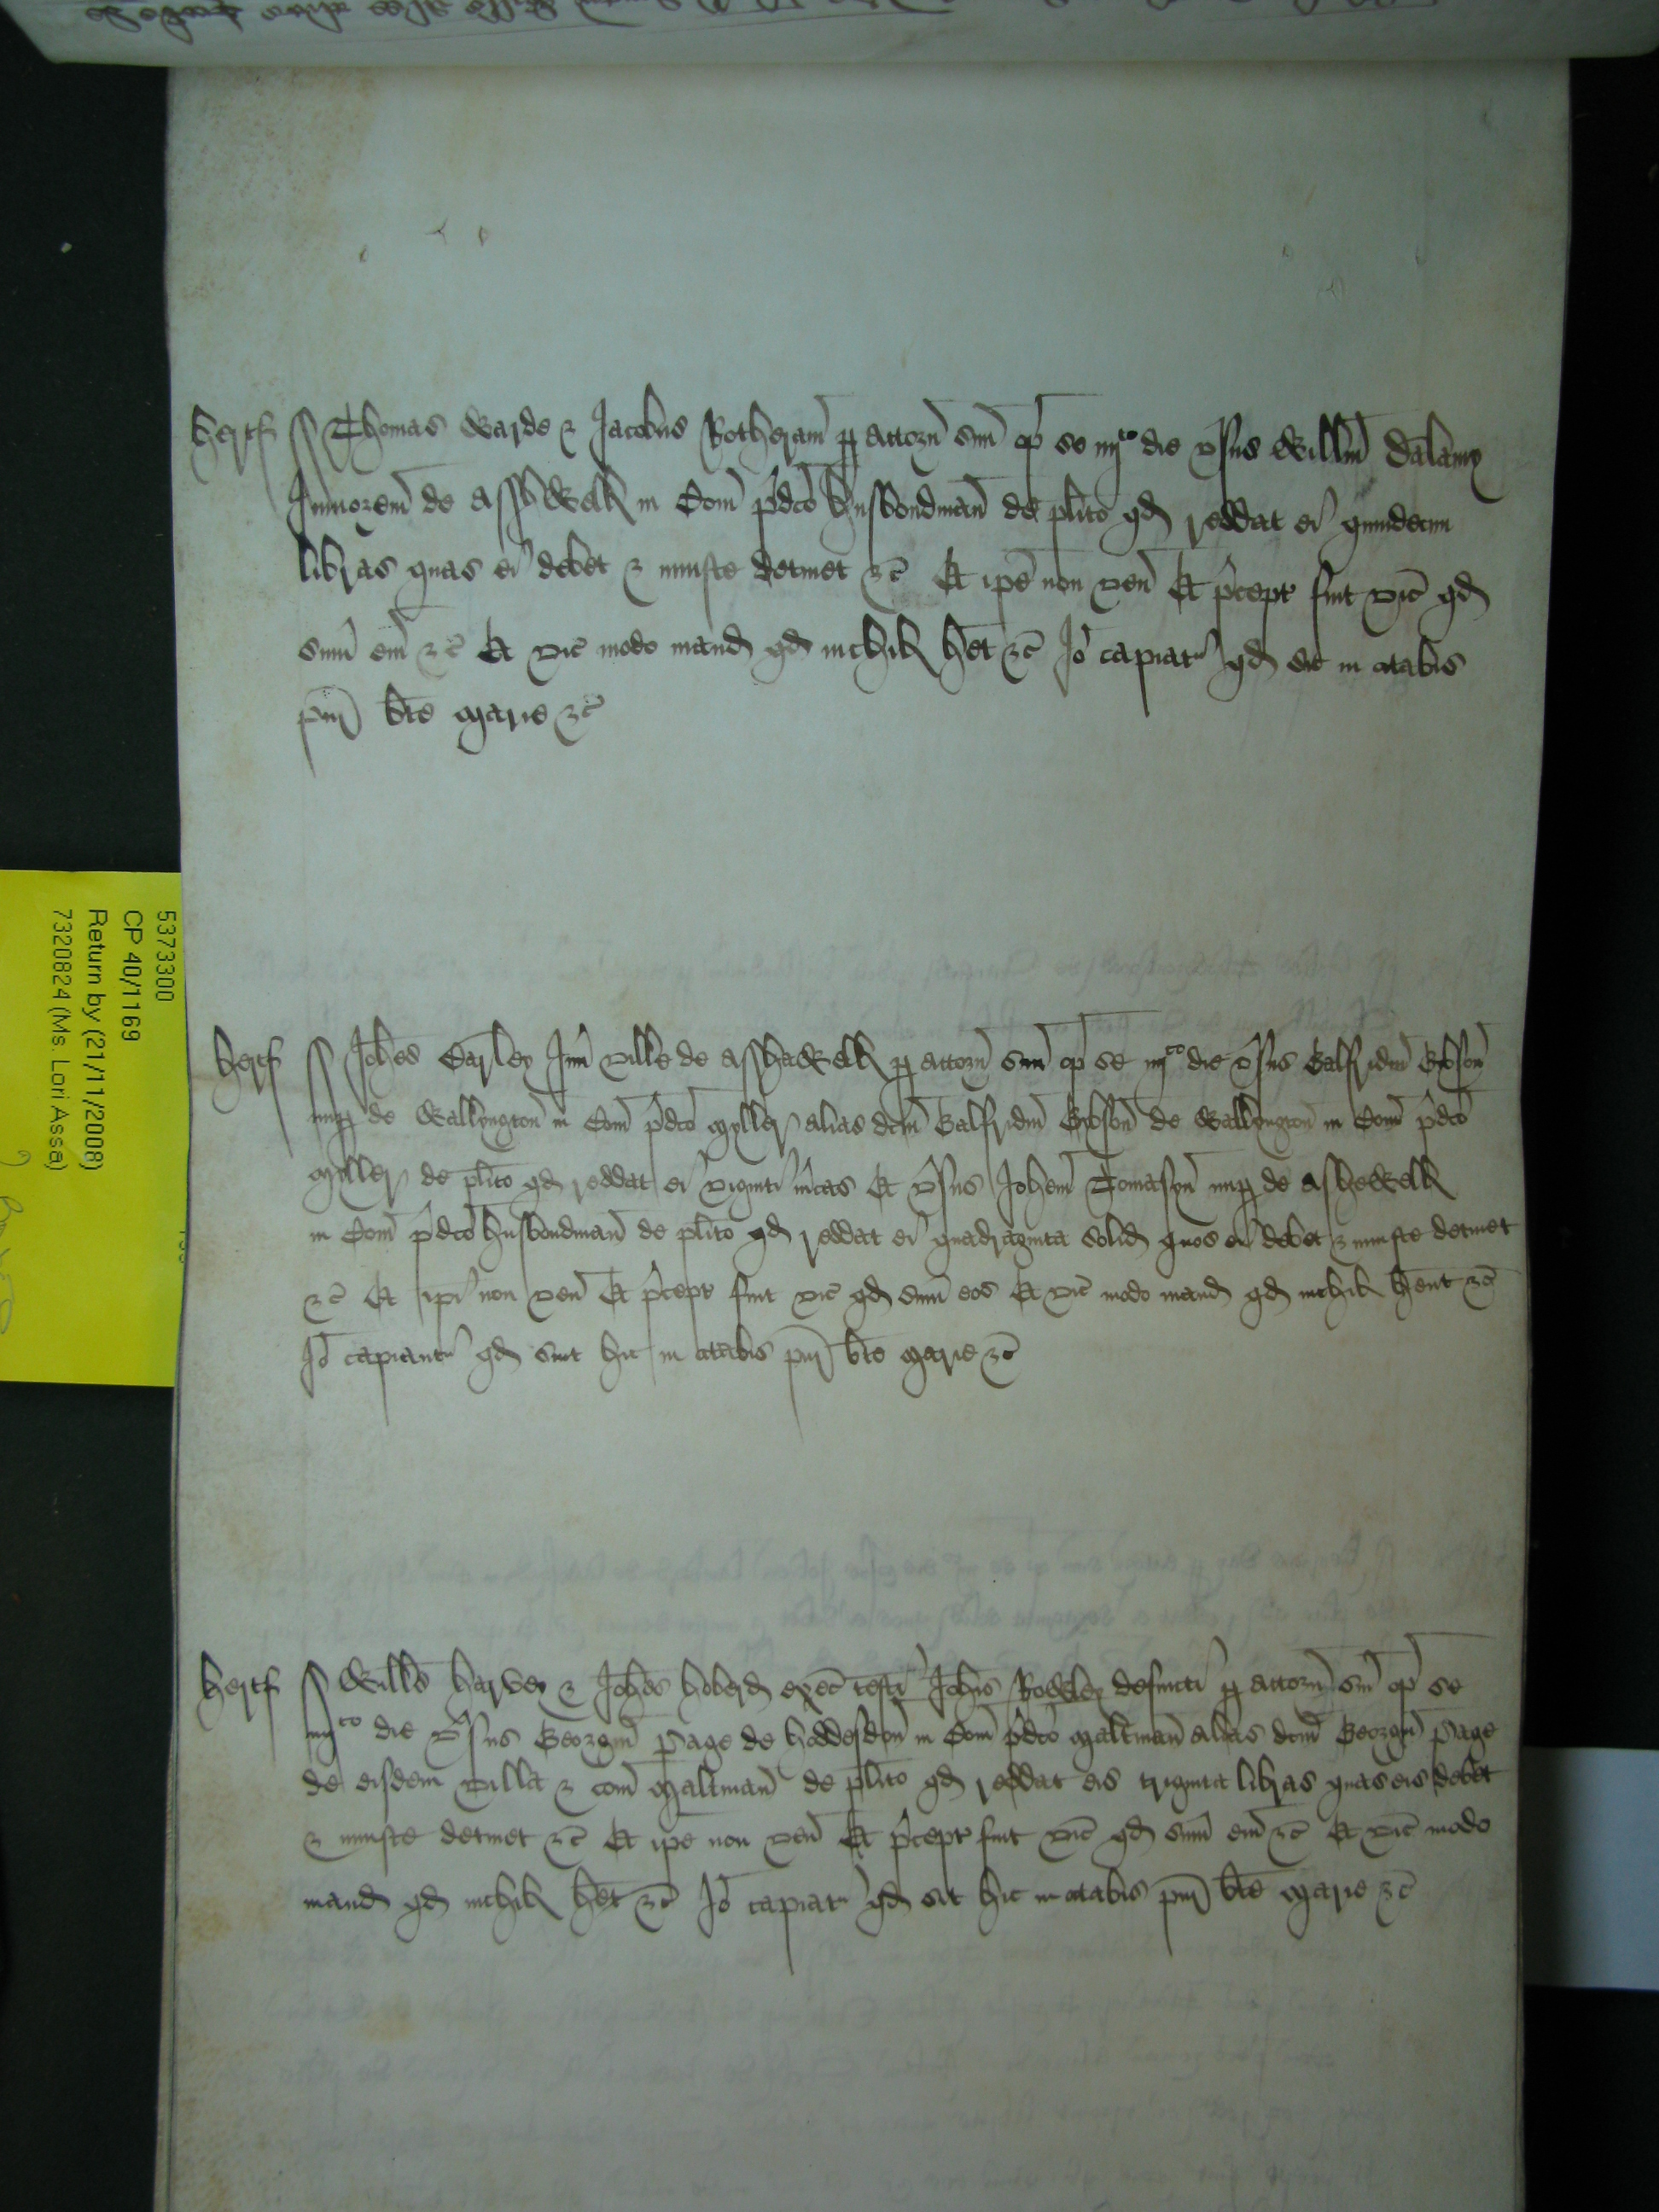 Hertf ss Thomas Warde & Jacobus Rotheram p attorn suu op se iiijto die vsus Willm Dalamy
Juniorem de Asshwell in Com pdco husbondman de plito qd reddat ei quindecim
libras quas ei debet & iniuste detinet &c Et ipe non ven Et pcept fuit vic qd
sum eu &c Et vic modo mand qd nichil het &c Io capiat qd sit in octabis
pur bte Marie &c
Hertf ss Johes Carley Jun ville de Asshewell p attorn suu op se iiijto die vsus Galfridm Gybson
nup de Wallyngton in Com pdco Myller alias dcm Galfridm Gybson de Wallyngton in Com pdco
Myller de plito qd reddat ei viginti mcas Et vsus Johem Tomasyn nup de Asshewell
in Com pdco husbondman de plito qd reddat ei quadraginta solid quos ei debet & iniuste detinet
&c Et ipi non ven Et pcept fuit vic qd sum eos Et vic modo mand qd nichil hent &c
Io capiant qd sint hic in octabis pur bte Marie &c
Hertf ss Wills Harvey & Johes Hoberd exec testi Johis Rowley defuncti p attorn suu op se
iiijto die vsus Georgiu Page de Hoddesdon in Com pdco Maltman alias dcm Georgiu Page
de eisdem villa & com Maltman de plito qd reddat eis triginta libras quas eis debet
& iniuste detinet &c Et ipe non ven Et pcept fuit vic qd sum eu &c Et vic modo
mand qd nichil het &c Io capiat qd sit hic in octabis pur bte Marie &c
5373300
CP 40/1169
Return by (21/11/2008)
7320824 (Ms. Lori Assa)